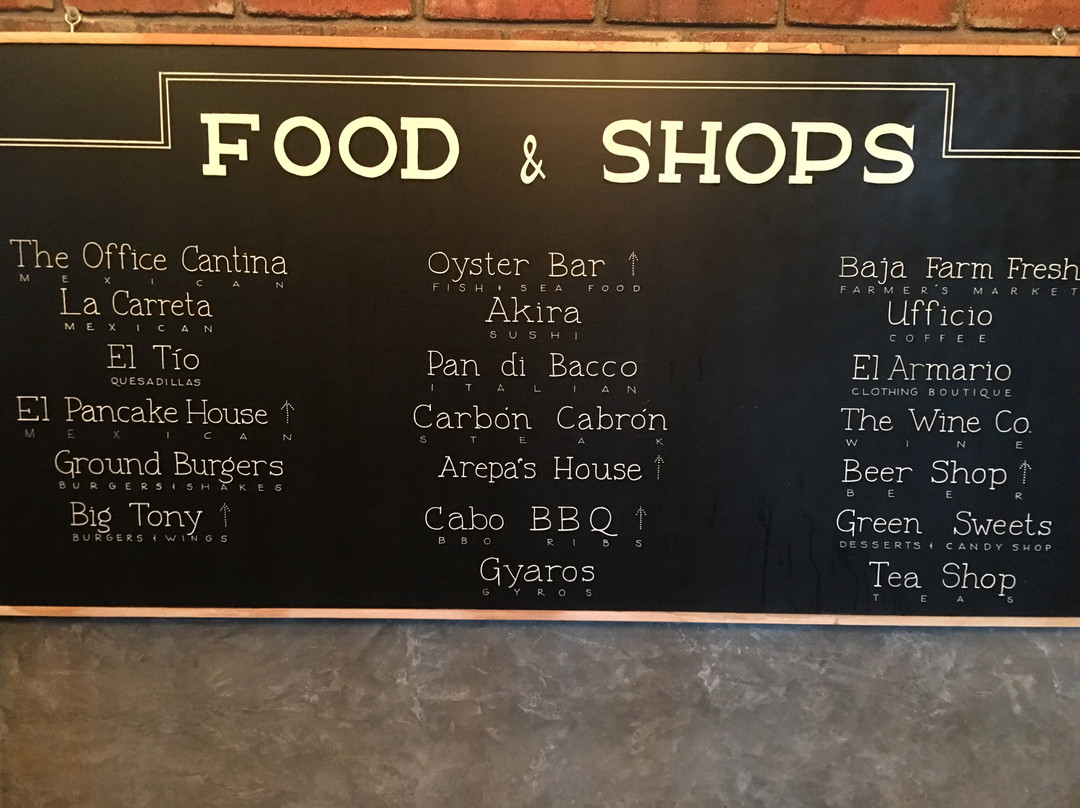 FOOD & SHOPS
The Office Cantina
MEXICAN
La Carreta
MEXICAN
El Tío
QUESADILLAS
El Pancake House ↑
MEXICAN
Ground Burgers
BURGERS & SHAKES
Big Tony ↑
BURGERS & WINGS
Oyster Bar ↑
FISH & SEA FOOD
Akira
SUSHI
Pan di Bacco
ITALIAN
Carbón Cabrón
STEAK
Arepa's House ↑
Cabo BBQ ↑
BBQ RIBS
Gyaros
GYROS
Baja Farm Fresh
FARMER'S MARKET
Ufficio
COFFEE
El Armario
CLOTHING BOUTIQUE
The Wine Co.
WINE
Beer Shop ↑
BEER
Green Sweets
DESSERTS & CANDY SHOP
Tea Shop
TEAS